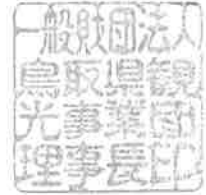 一般財団法人
鳥取県観
光事業団
理事長印